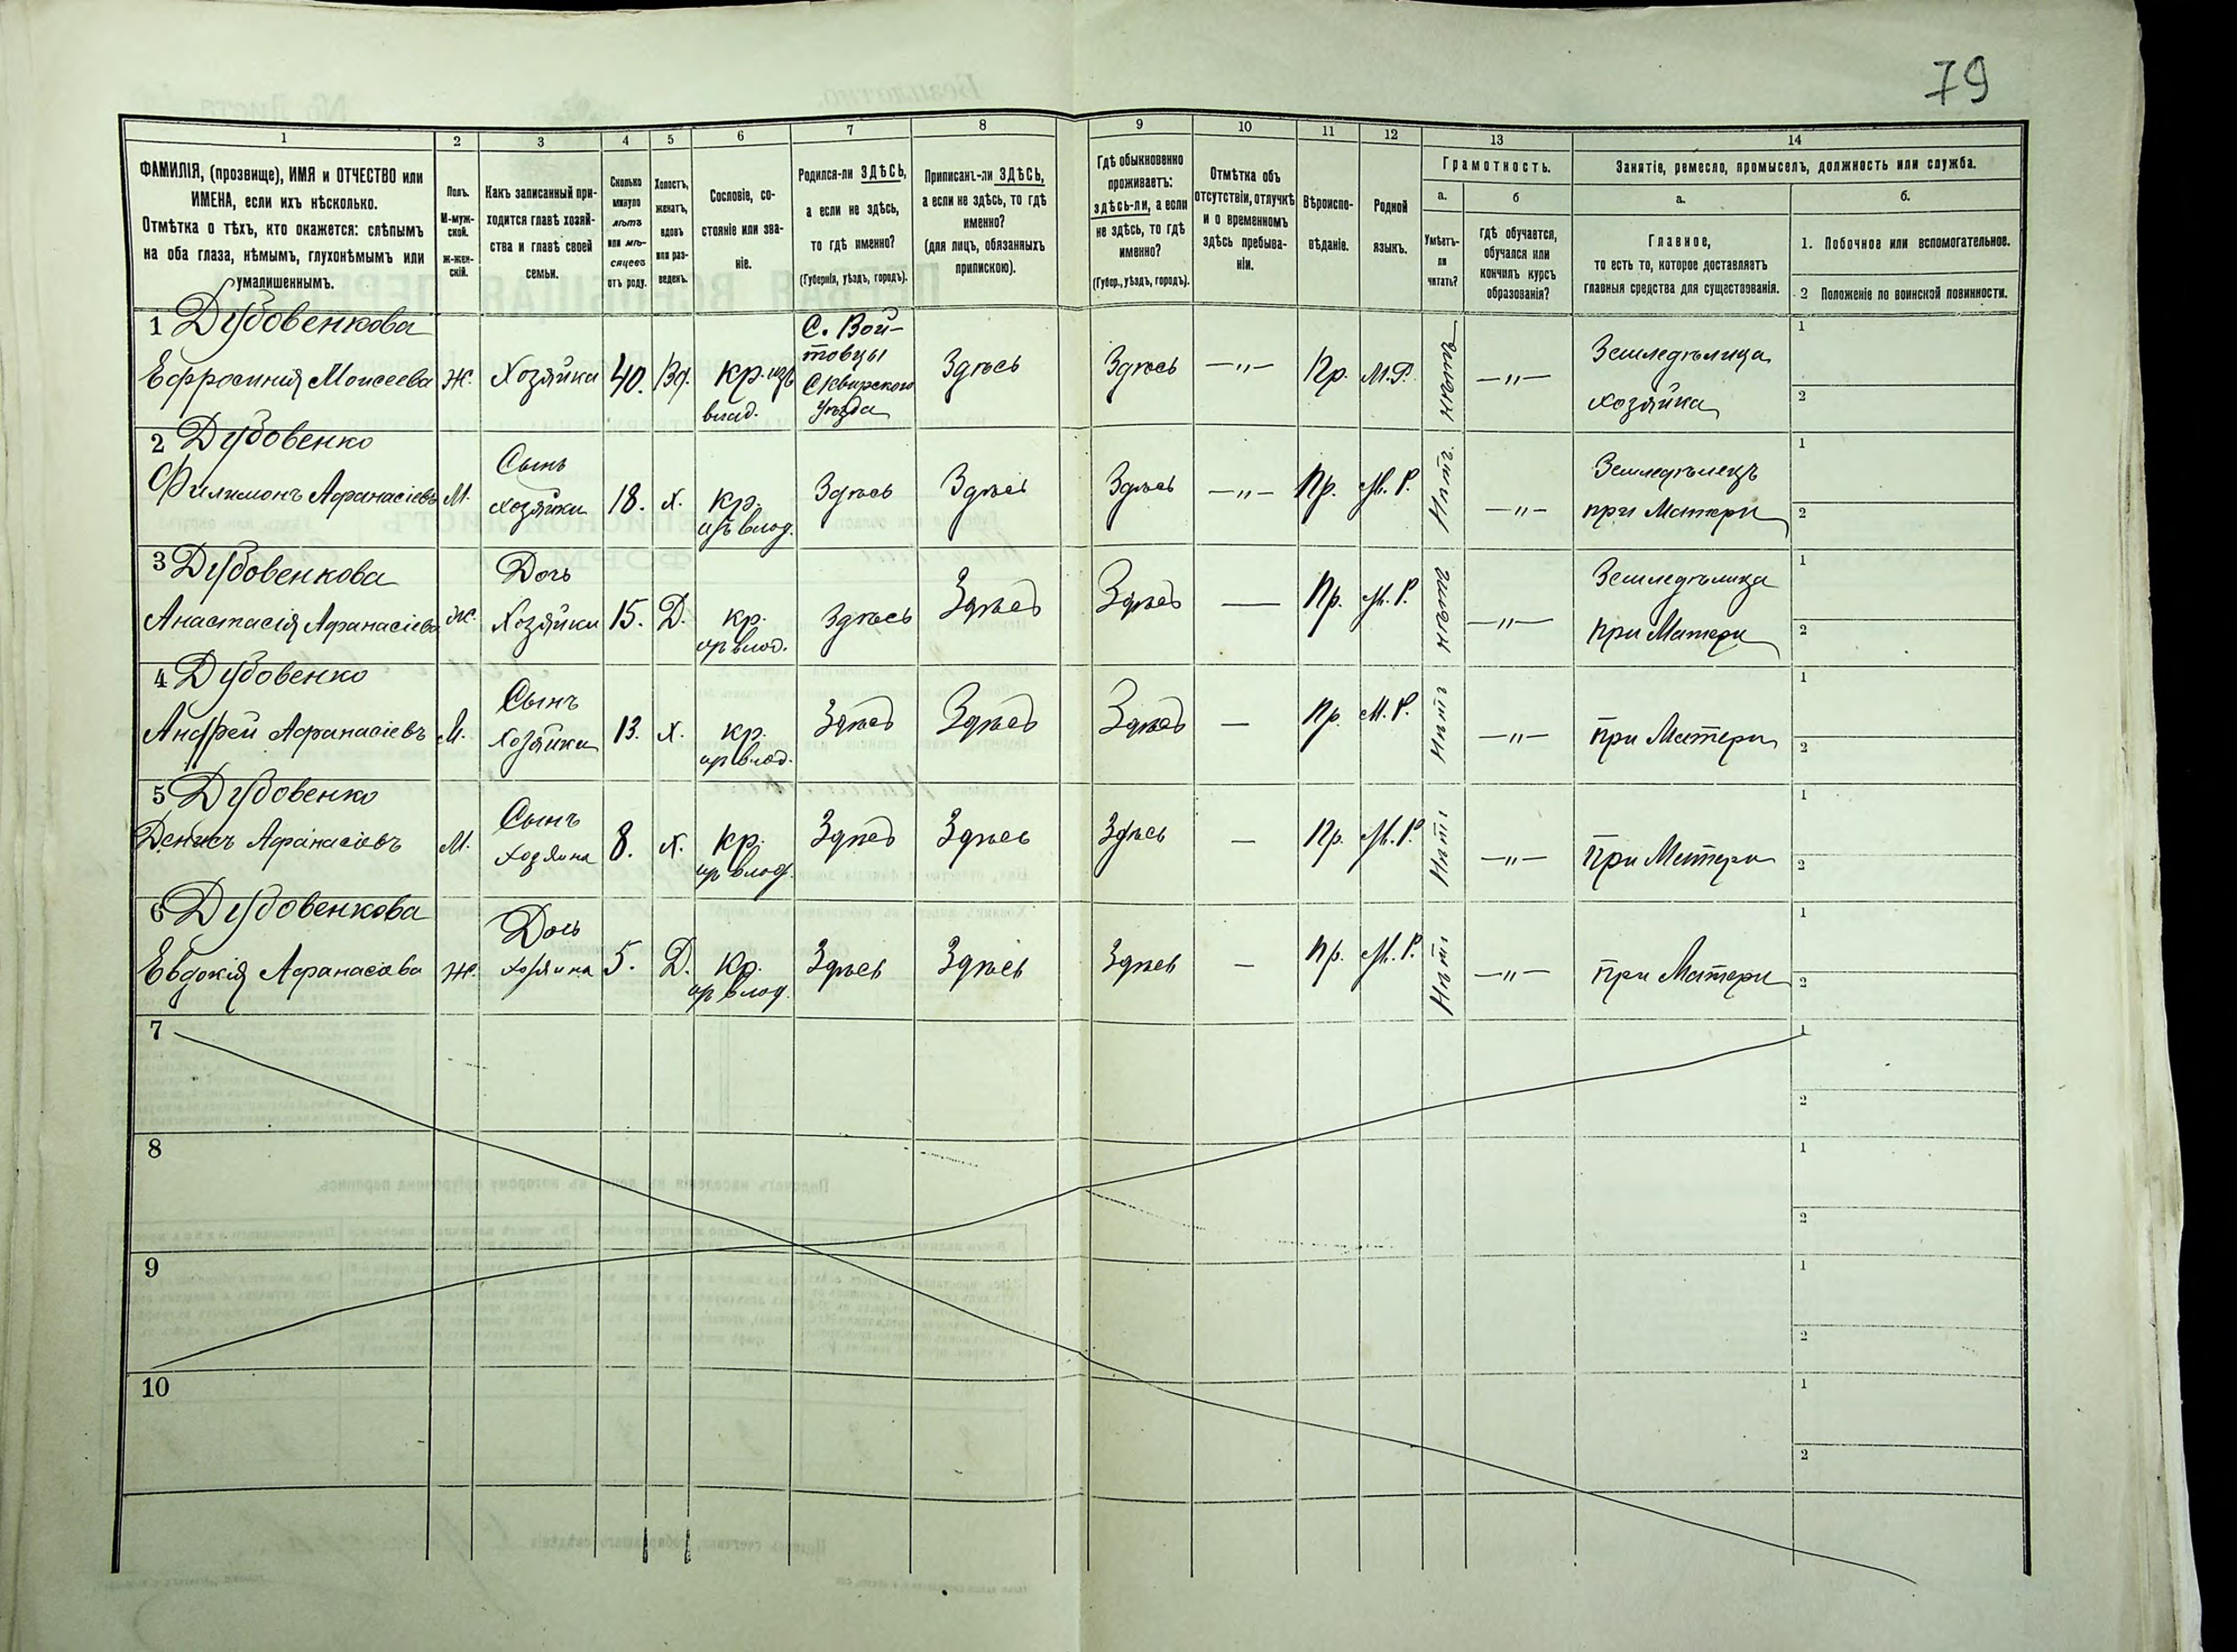 79
1 2 3 4 5 6 7 8 9 10 11 12 13 14
ФАМИЛІЯ, (прозвище), ИМЯ и ОТЧЕСТВО или
ИМЕНА, если ихъ нѣсколько.
Отмѣтка о тѣхъ, кто окажется: слѣпымъ
на оба глаза, нѣмымъ, глухонѣмымъ или
умалишеннымъ.
Полъ.
М-муж-
ской.
Ж-жен-
скій.
Какъ записанный при-
ходится главѣ хозяй-
ства и главѣ своей
семьи.
Сколько
минуло
лѣтъ
или мѣ-
сяцевъ
отъ роду.
Холостъ,
женатъ,
вдовъ
или раз-
веденъ.
Сословіе, со-
стояніе или зва-
ніе.
Родился-ли ЗДѢСЬ,
а если не здѣсь,
то гдѣ именно?
(Губернія, уѣздъ, городъ).
Приписанъ-ли ЗДѢСЬ,
а если не здѣсь, то гдѣ
именно?
(для лицъ, обязанныхъ
припискою).
Гдѣ обыкновенно
проживаетъ:
здѣсь-ли, а если
не здѣсь, то гдѣ
именно?
(Губер., уѣздъ, городъ).
Отмѣтка объ
отсутствіи, отлучкѣ
и о временномъ
здѣсь пребыва-
ніи.
Вѣроиспо-
вѣданіе.
Родной
языкъ.
Грамотность.
а.
Умѣетъ-
ли
читать?
б
гдѣ обучается,
обучался или
кончилъ курсъ
образованія?
Занятіе, ремесло, промыселъ, должность или служба.
а.
Главное,
то есть то, которое доставляетъ
главныя средства для существованія.
б.
1. Побочное или вспомогательное.
2 Положеніе по воинской повинности.
1 Дубовенкова
Ефросинія Моисеева Ж. Хозяйка 40. Вд. кр. изъ
влад.
С. Вой-
товцы
Сквирскаго
Уѣзда
Здѣсь Здѣсь —"— Пр. М.Р. нѣтъ —"— Земледѣлица
хозяйка
1
2
2 Дубовенко
Филимонъ Афанасіевъ М. Сынъ
хозяйки 18. х. кр.
изъ влад. Здѣсь Здѣсь Здѣсь —"— Пр. М.Р. Нѣтъ —"— Земледѣлецъ
при Матери
1
2
3 Дубовенкова
Анастасія Афанасіева Ж. Дочь
Хозяйки 15. Д. кр.
изъ влад. Здѣсь Здѣсь Здѣсь — Пр. М.Р. нѣтъ —"— Земледѣлица
при Матери
1
2
4 Дубовенко
Андрей Афанасіевъ М. Сынъ
Хозяйки 13. х. кр.
изъ влад. Здѣсь Здѣсь Здѣсь — Пр. М.Р. Нѣтъ —"— при Матери
1
2
5 Дубовенко
Денисъ Афанасіевъ М. Сынъ
Хозяина 8. х. кр.
изъ влад. Здѣсь Здѣсь Здѣсь — Пр. М.Р. Нѣтъ —"— При Матери
1
2
6 Дубовенкова
Евдокія Афанасіева Ж. Дочь
Хозяина 5. Д. Кр.
изъ влад. Здѣсь Здѣсь Здѣсь — Пр. М.Р. Нѣтъ —"— при Матери
1
2
7
1
2
8
1
2
9
1
2
10
1
2